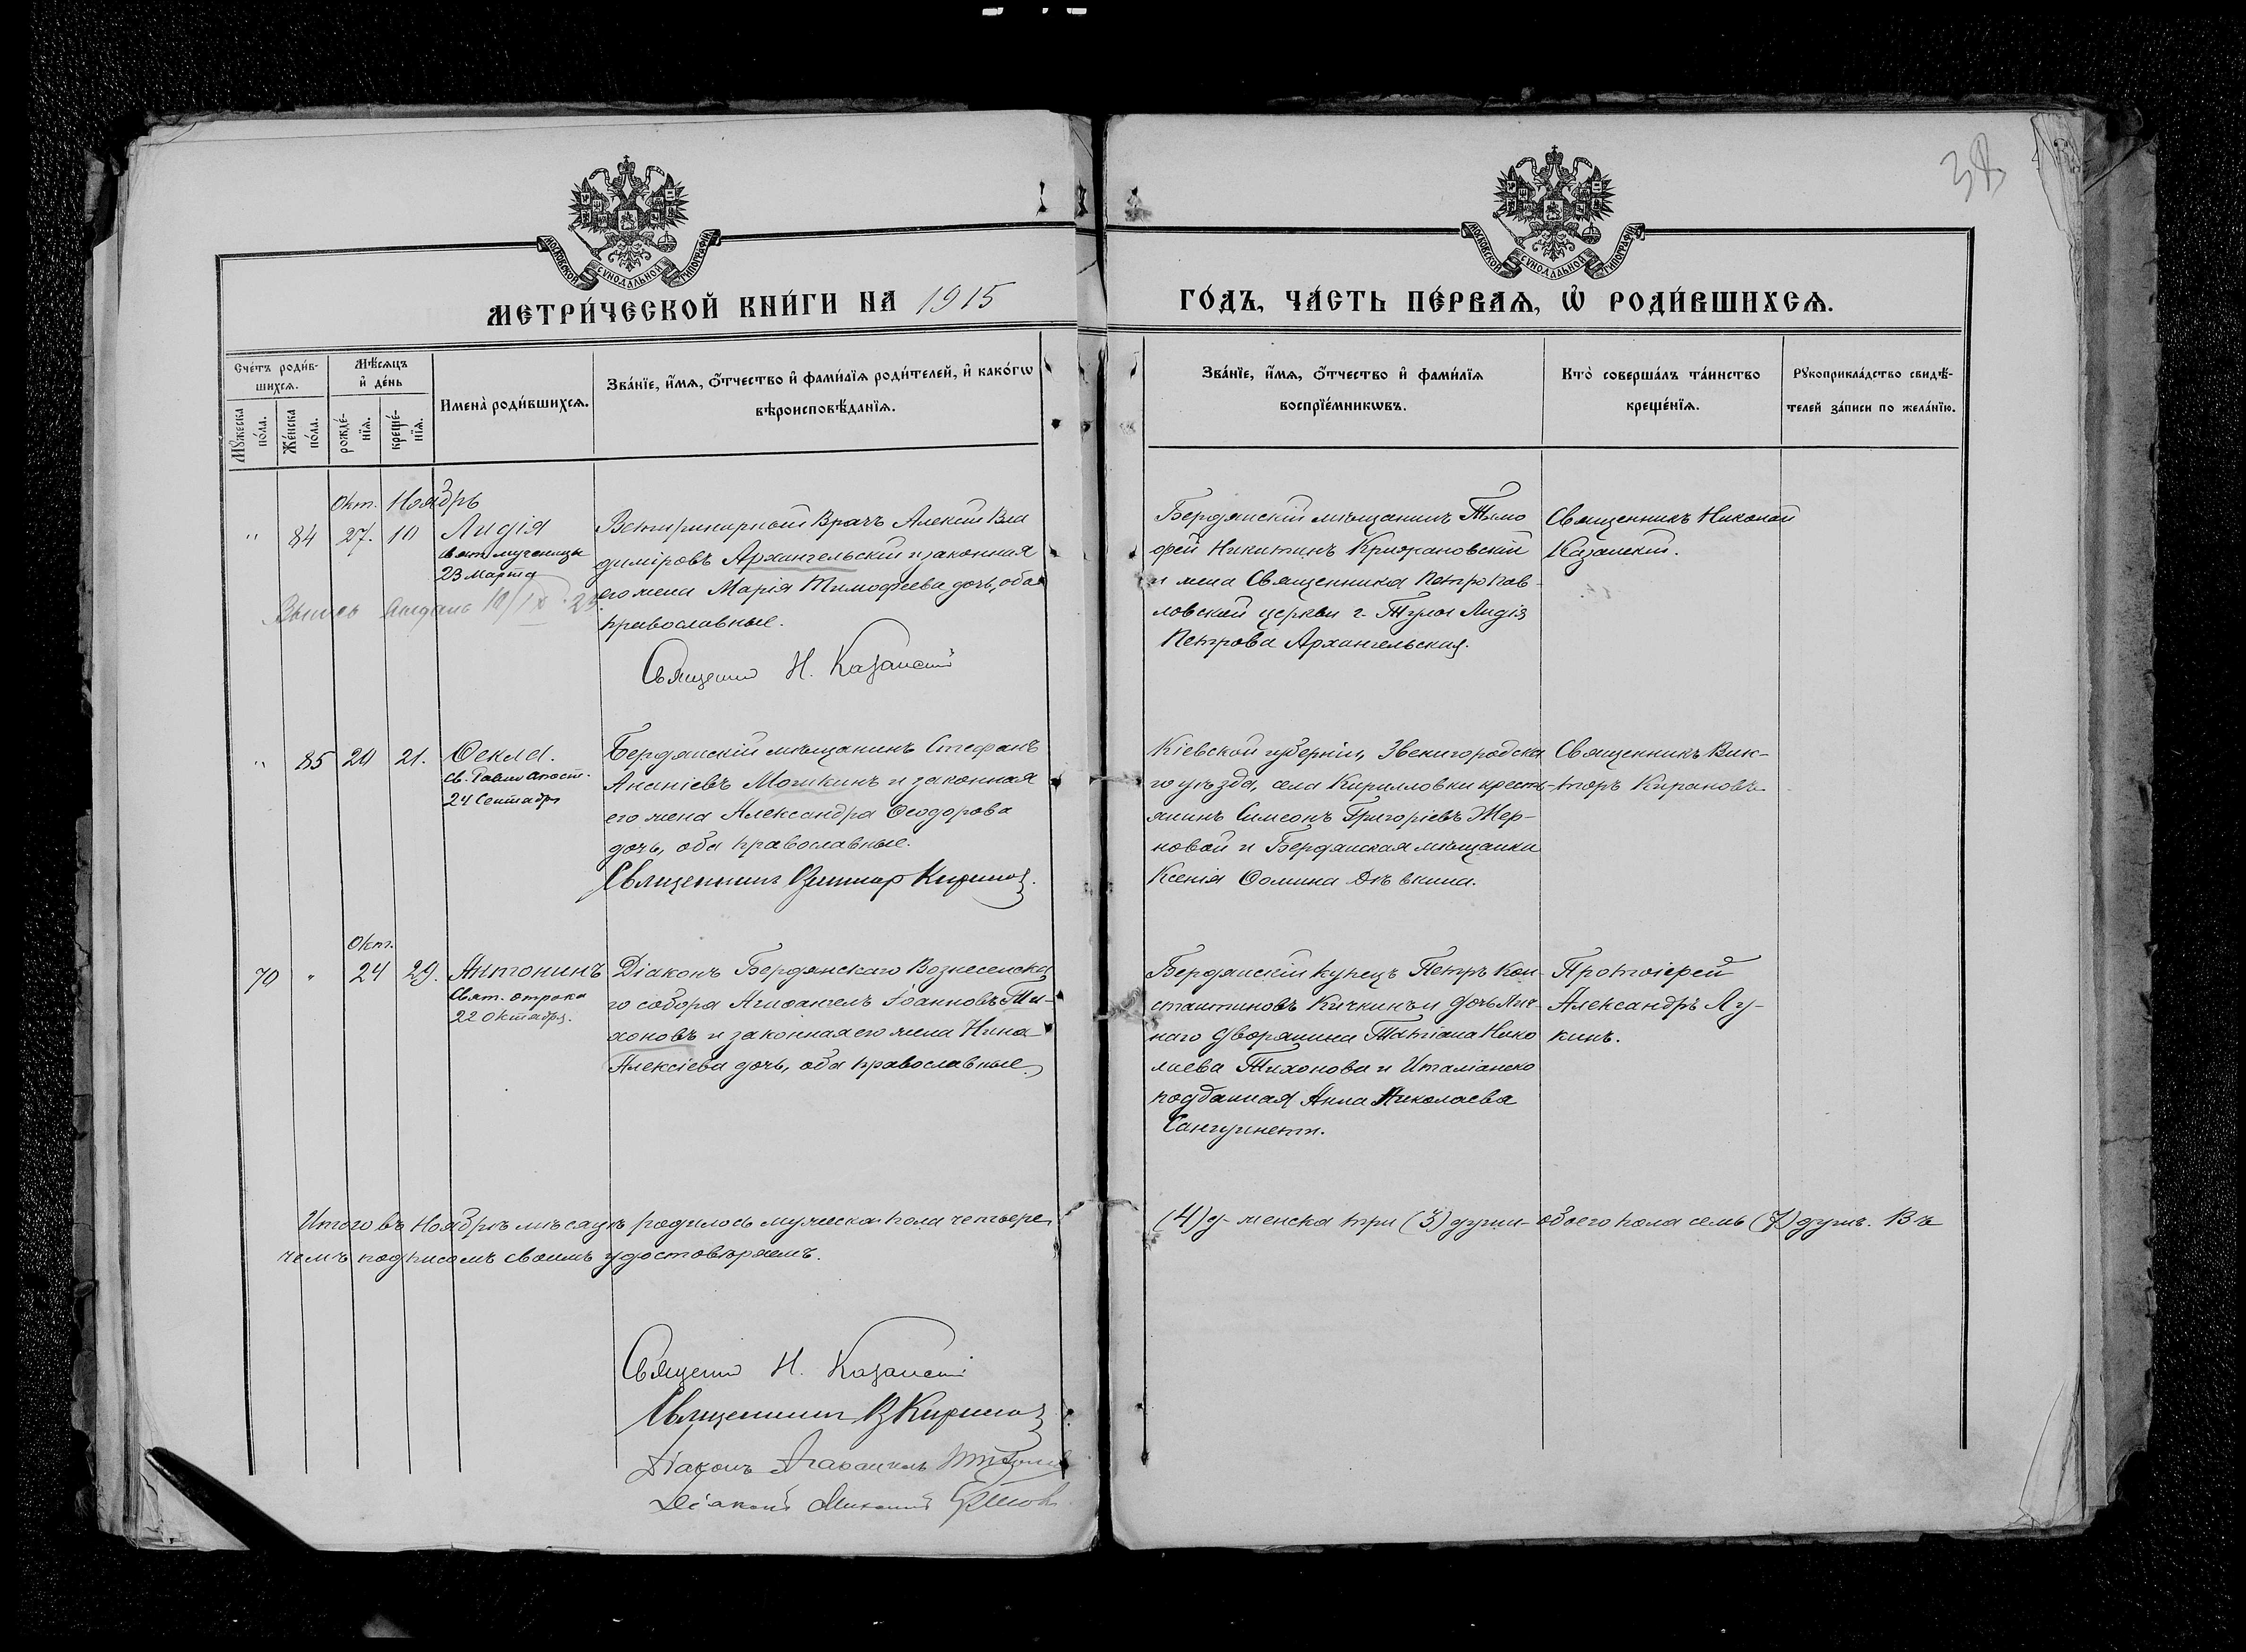 38
МОСКОВСКОЙ СѴНОДАЛЬНОЙ ТИПОГРАФІИ
МОСКОВСКОЙ СѴНОДАЛЬНОЙ ТИПОГРАФІИ
МЕТРИ́ЧЕСКОЙ КНИ́ГИ НА 1915
ГО́ДЪ, ЧА́СТЬ ПЕ́РВАѦ, Ѡ҆ РОДИ́ВШИХСѦ.
Сче́тъ роди́в-
шихсѧ.
Мѣ́сѧцъ
и҆ де́нь
Мꙋ́жеска
по́ла.
Же́нска
по́ла.
рожде́-
нїѧ.
креще́-
нїѧ.
Имена̀ роди́вшихсѧ.
Зва́нїе, и҆́мѧ, ѻ҆́тчество и҆ фами́лїѧ роди́телей, и҆ како́гѡ
вѣроисповѣ́данїѧ.
Зва́нїе, и҆́мѧ, ѻ҆́тчество и҆ фами́лїѧ
воспрїе́мникѡвъ.
Кто̀ соверша́лъ та́инство
креще́нїѧ.
Рꙋкоприкла́дство свидѣ́-
телей за́писи по жела́нїю.
Окт. Ноябрь
" 84 27. 10 Лидія
Свят. мученицы
23 Марта
Ветеринарный Врачъ Алексій Вла
диміровъ Архангельскій и законная
его жена Марія Тимофеева дочь, оба
православные.
Священ Н. Казанскій
Бердянскій мѣщанинъ Тимо
фей Никитинъ Крижановскій
и жена Священника Петропав-
ловской церкви г. Тулы Лидія
Петрова Архангельская.
Священникъ Николай
Казанскій.
" 85 20 21. Ѳекла.
св. Равно Апост.
24 Сентября
Бердянскій мѣщанинъ Стефанъ
Ананіевъ Могикинъ и законная
его жена Александра Ѳеодорова
дочь, оба православные.
Священникъ Викторъ Кирановъ.
Кіевской губерніи, Звенигородска
го уѣзда, села Кирилловки кресть-
янинъ Симеонъ Григоріевъ Жер-
новой и Бердянская мѣщанка
Ксенія Ѳомина Дѣвкина.
Священникъ Вик-
торъ Кирановъ
Окт.
70 " 24 29. Антонинъ
Свят. отрока
22 Октября.
Діаконъ Бердянскаго Вознесенска
го собора Агаѳангелъ Іоанновъ Ти-
хоновъ и законная его жена Нина
Алексіева дочь, оба православные.
Бердянскій купецъ Петръ Кон-
стантиновъ Кичкинъ и дочь лич-
наго дворянина Татіана Нико
лаева Тихонова и Италіанско
подданная Анна Николаева
Сангуинети.
Протоіерей
Александръ Лу-
кинъ.
Итого въ Ноябрѣ мѣсяцѣ родилось мужеска пола четверо
(4) у- женска три (3) души- обоего пола семь (7) душъ. Въ
чемъ подписомъ своимъ удостовѣряемъ.
Священ Н. Казанскій
Священникъ В Кирановъ
Діаконъ Агаѳангелъ Тихоновъ
Діаконъ Михаилъ